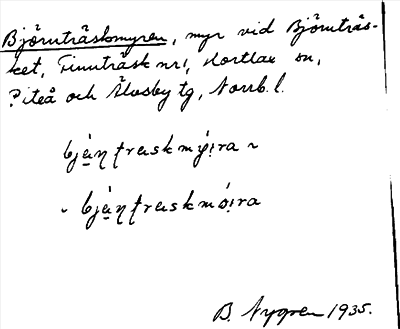 Björnträskmyren, myr vid Björnträs-
ket, Finnträsk nr 1, Hortlax sn,
Piteå och Älvsby tg, Norrb. l.
bjä̀ṇtraskmỵ́ra ~
~ bjä̀ṇtraskmǿ̣ra
B. Nygren 1935.